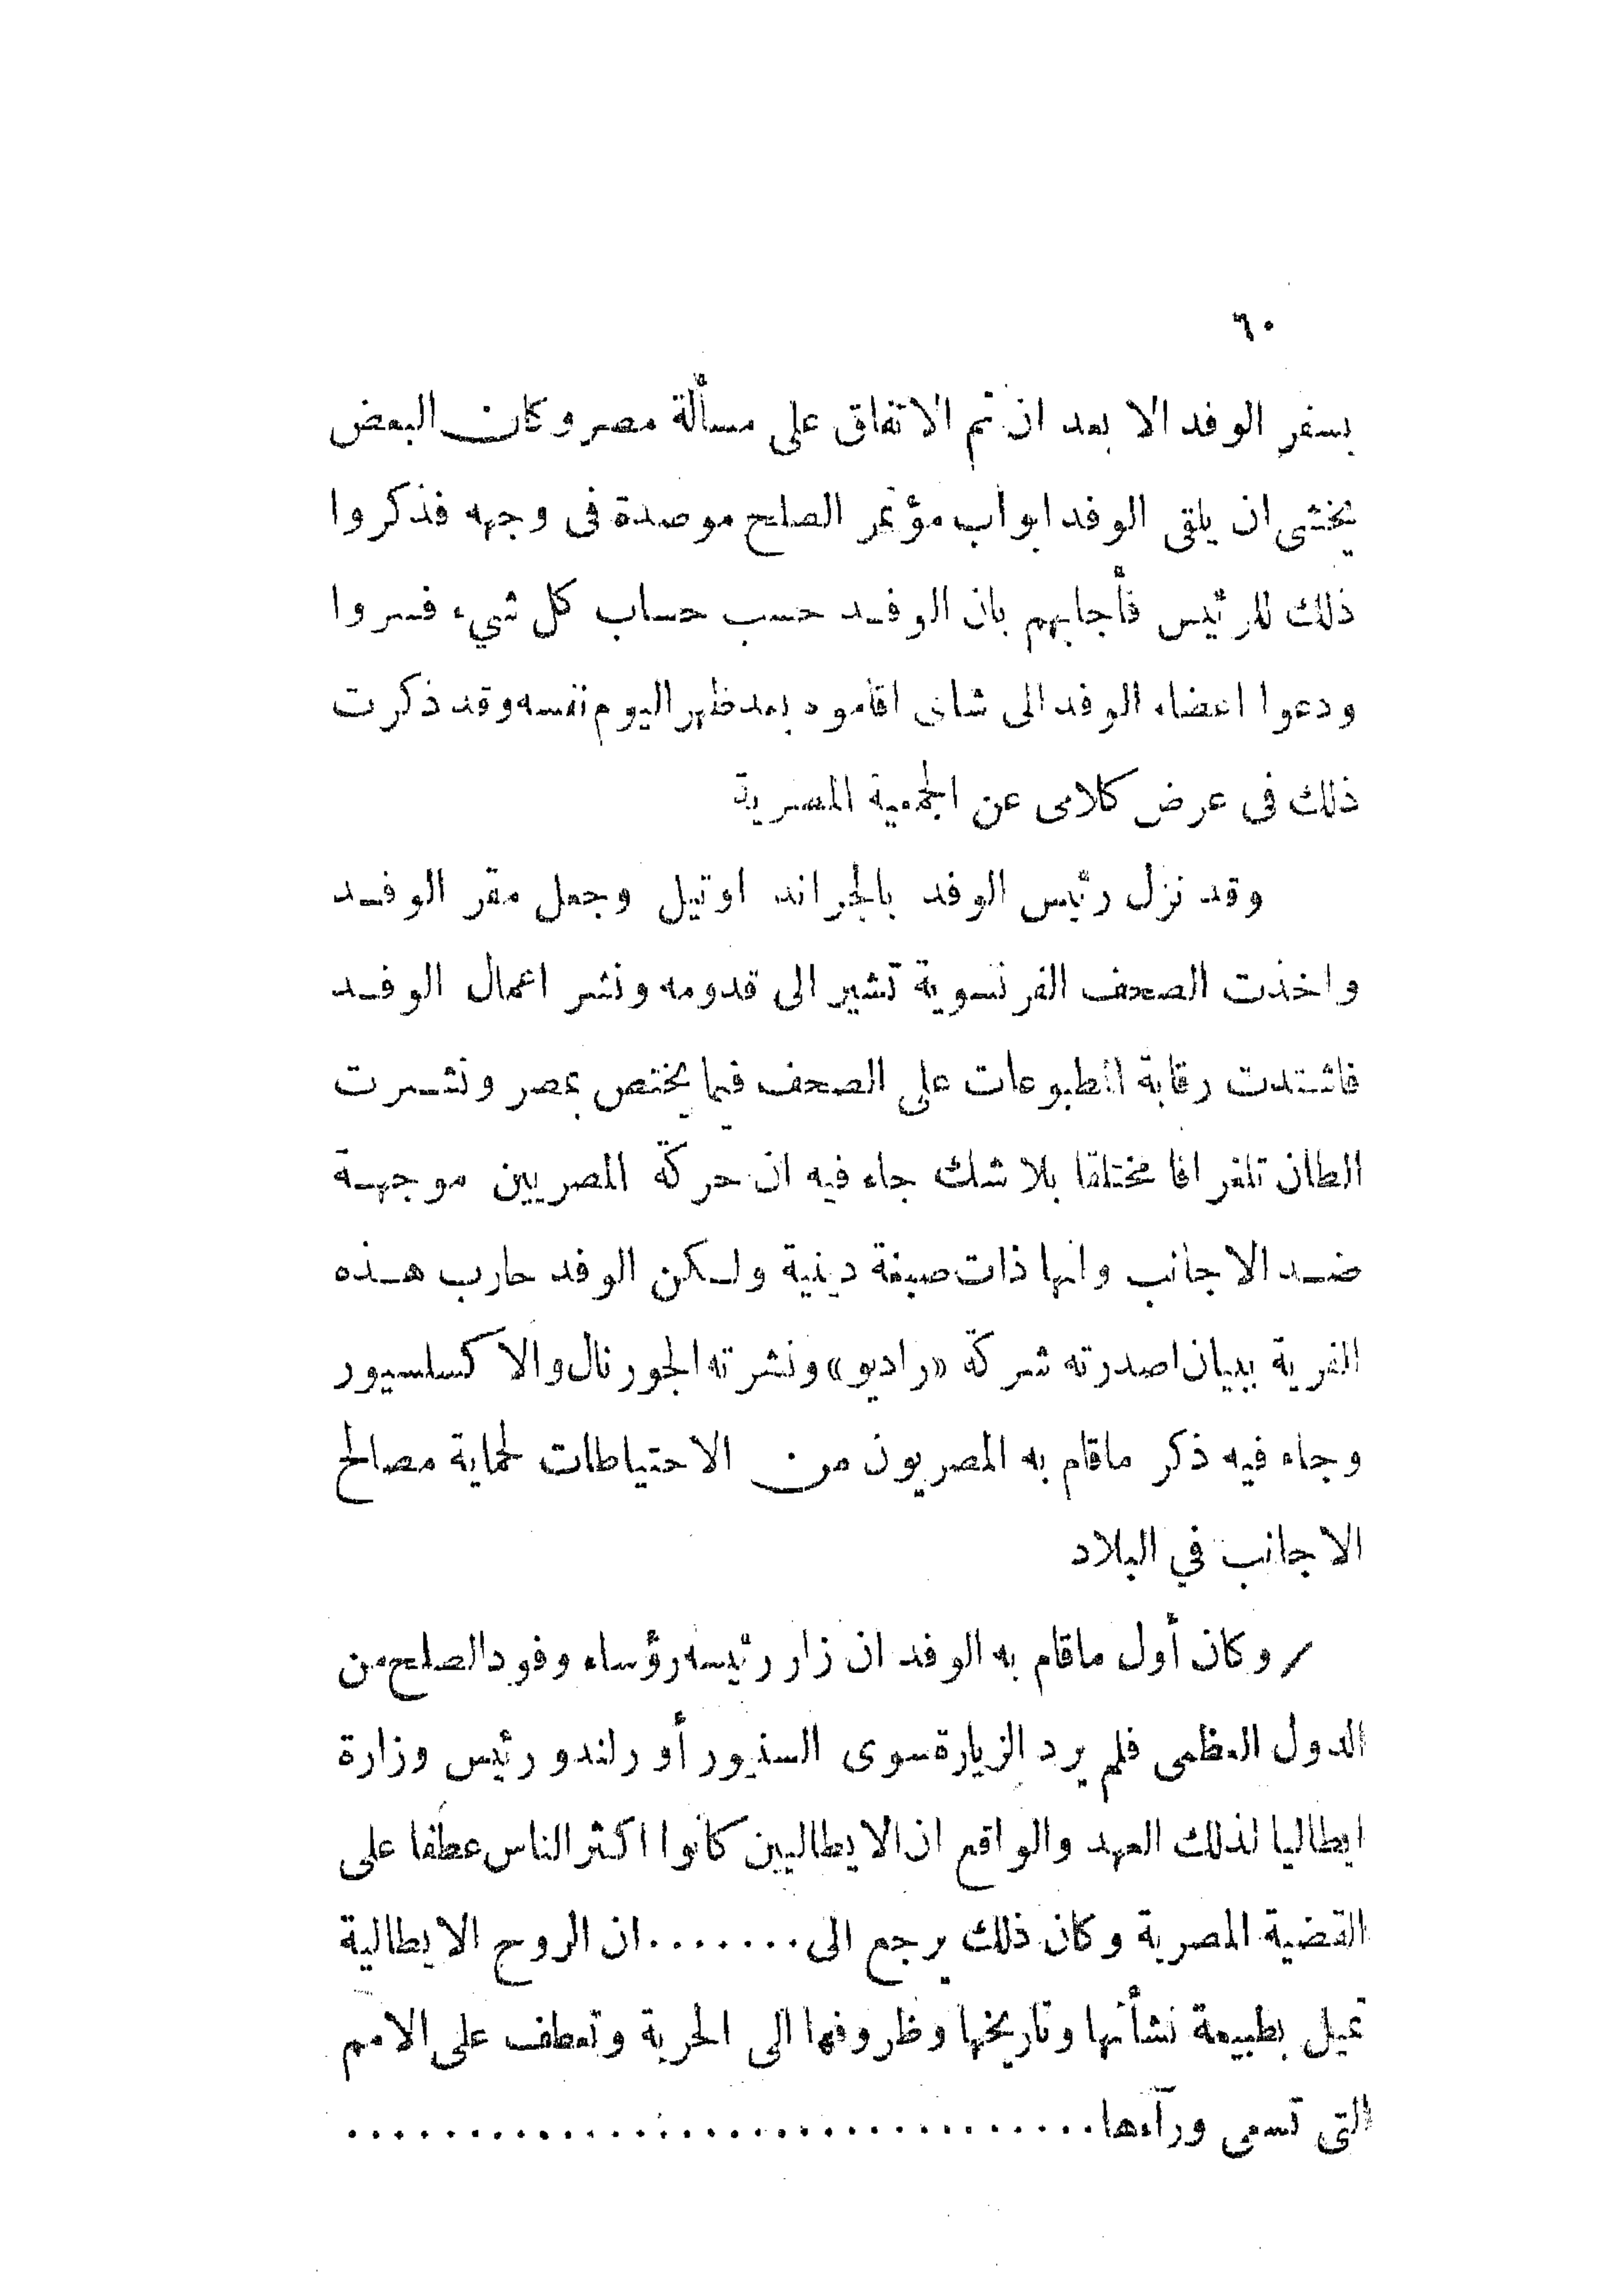 ٦٠
بسفر الوفد الا بعد ان تم الاتفاق على مسألة مصر وكان البعض
يخشى ان يلقى الوفد ابواب مؤتمر الصلح موصدة فى وجهه فذكروا
ذلك للرئيس فأجابهم بان الوفد حسب حساب كل شيء فسروا
ودعوا اعضاء الوفد الى شاى اقاموه بعد ظهر اليوم نفسه وقد ذكرت
ذلك فى عرض كلامى عن الجمعية المصرية
وقد نزل رئيس الوفد بالجراند اوتيل وجعل مقر الوفد
واخذت الصحف الفرنسوية تشير الى قدومه ونشر اعمال الوفد
فاشتدت رقابة المطبوعات على الصحف فيما يختص بمصر ونشرت
الطان تلغرافا مختلقا بلا شك جاء فيه ان حركة المصريين موجهة
ضد الاجانب وانها ذات صبغة دينية ولكن الوفد حارب هذه
الفرية ببيان اصدرته شركة «راديو» ونشرته الجورنال والاكسلسيور
وجاء فيه ذكر ماقام به المصريون من الاحتياطات لحماية مصالح
الاجانب في البلاد
/ وكان أول ماقام به الوفد ان زار رئيسه رؤساء وفود الصلح من
الدول العظمى فلم يرد الزيارة سوى السنيور أورلندو رئيس وزارة
ايطاليا لذلك العهد والواقع ان الايطاليين كانوا اكثر الناس عطفا على
القضية المصرية وكان ذلك يرجع الى.......ان الروح الايطالية
تميل بطبيعة نشأتها وتاريخها وظروفها الى الحرية وتعطف على الامم
التى تسعى ورآءها.................................